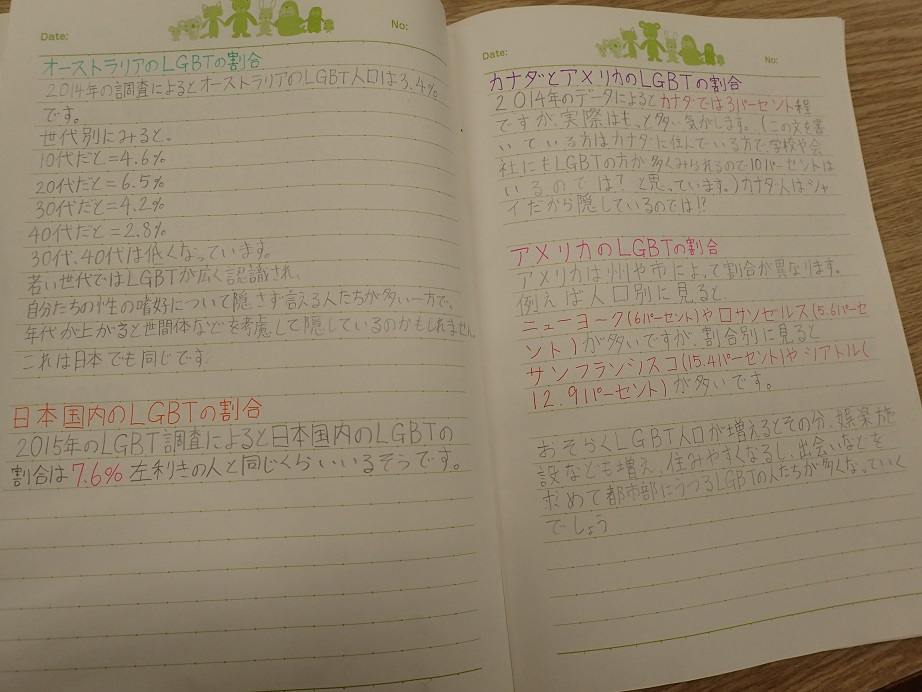 Date:
No:
オーストラリアのLGBTの割合
2014年の調査によるとオーストラリアのLGBT人口は3.4%
です。
世代別にみると。
10代だと=4.6%
20代だと=6.5%
30代だと=4.2%
40代だと=2.8%
30代、40代は低くなっています。
若い世代ではLGBTが広く認識され、
自分たちの性の嗜好について隠さず言える人たちが多い一方で、
年代が上がると世間体などを考慮して隠しているのかもしれません
これは日本でも同じです
日本国内のLGBTの割合
2015年のLGBT調査によると日本国内のLGBTの
割合は7.6%左利きの人と同じくらいいるそうです。
Date:
No:
カナダとアメリカのLGBTの割合
2014年のデータによるとカナダでは3パーセント程
ですが、実際はもっと多い気がします。(この文を書
いている方はカナダに住んでいる方で、学校や会
社にもLGBTの方が多くみられるので10パーセントは
いるのでは?と思っています。)カナダ人はシャ
イだから隠しているのでは!?
アメリカのLGBTの割合
アメリカは州や市によって割合が異なります。
例えば人口別に見ると、
ニューヨーク(6パーセント)やロサンゼルス(5.6パーセ
ント)が多いですが、割合別に見ると
サンフランシスコ(15.4パーセント)やシアトル(
12.9パーセント)が多いです。
おそらくLGBT人口が増えるとその分、娯楽施
設なども増え、住みやすくなるし、出会いなどを
求めて都市部にうつるLGBTの人たちが多くなっていく
でしょう